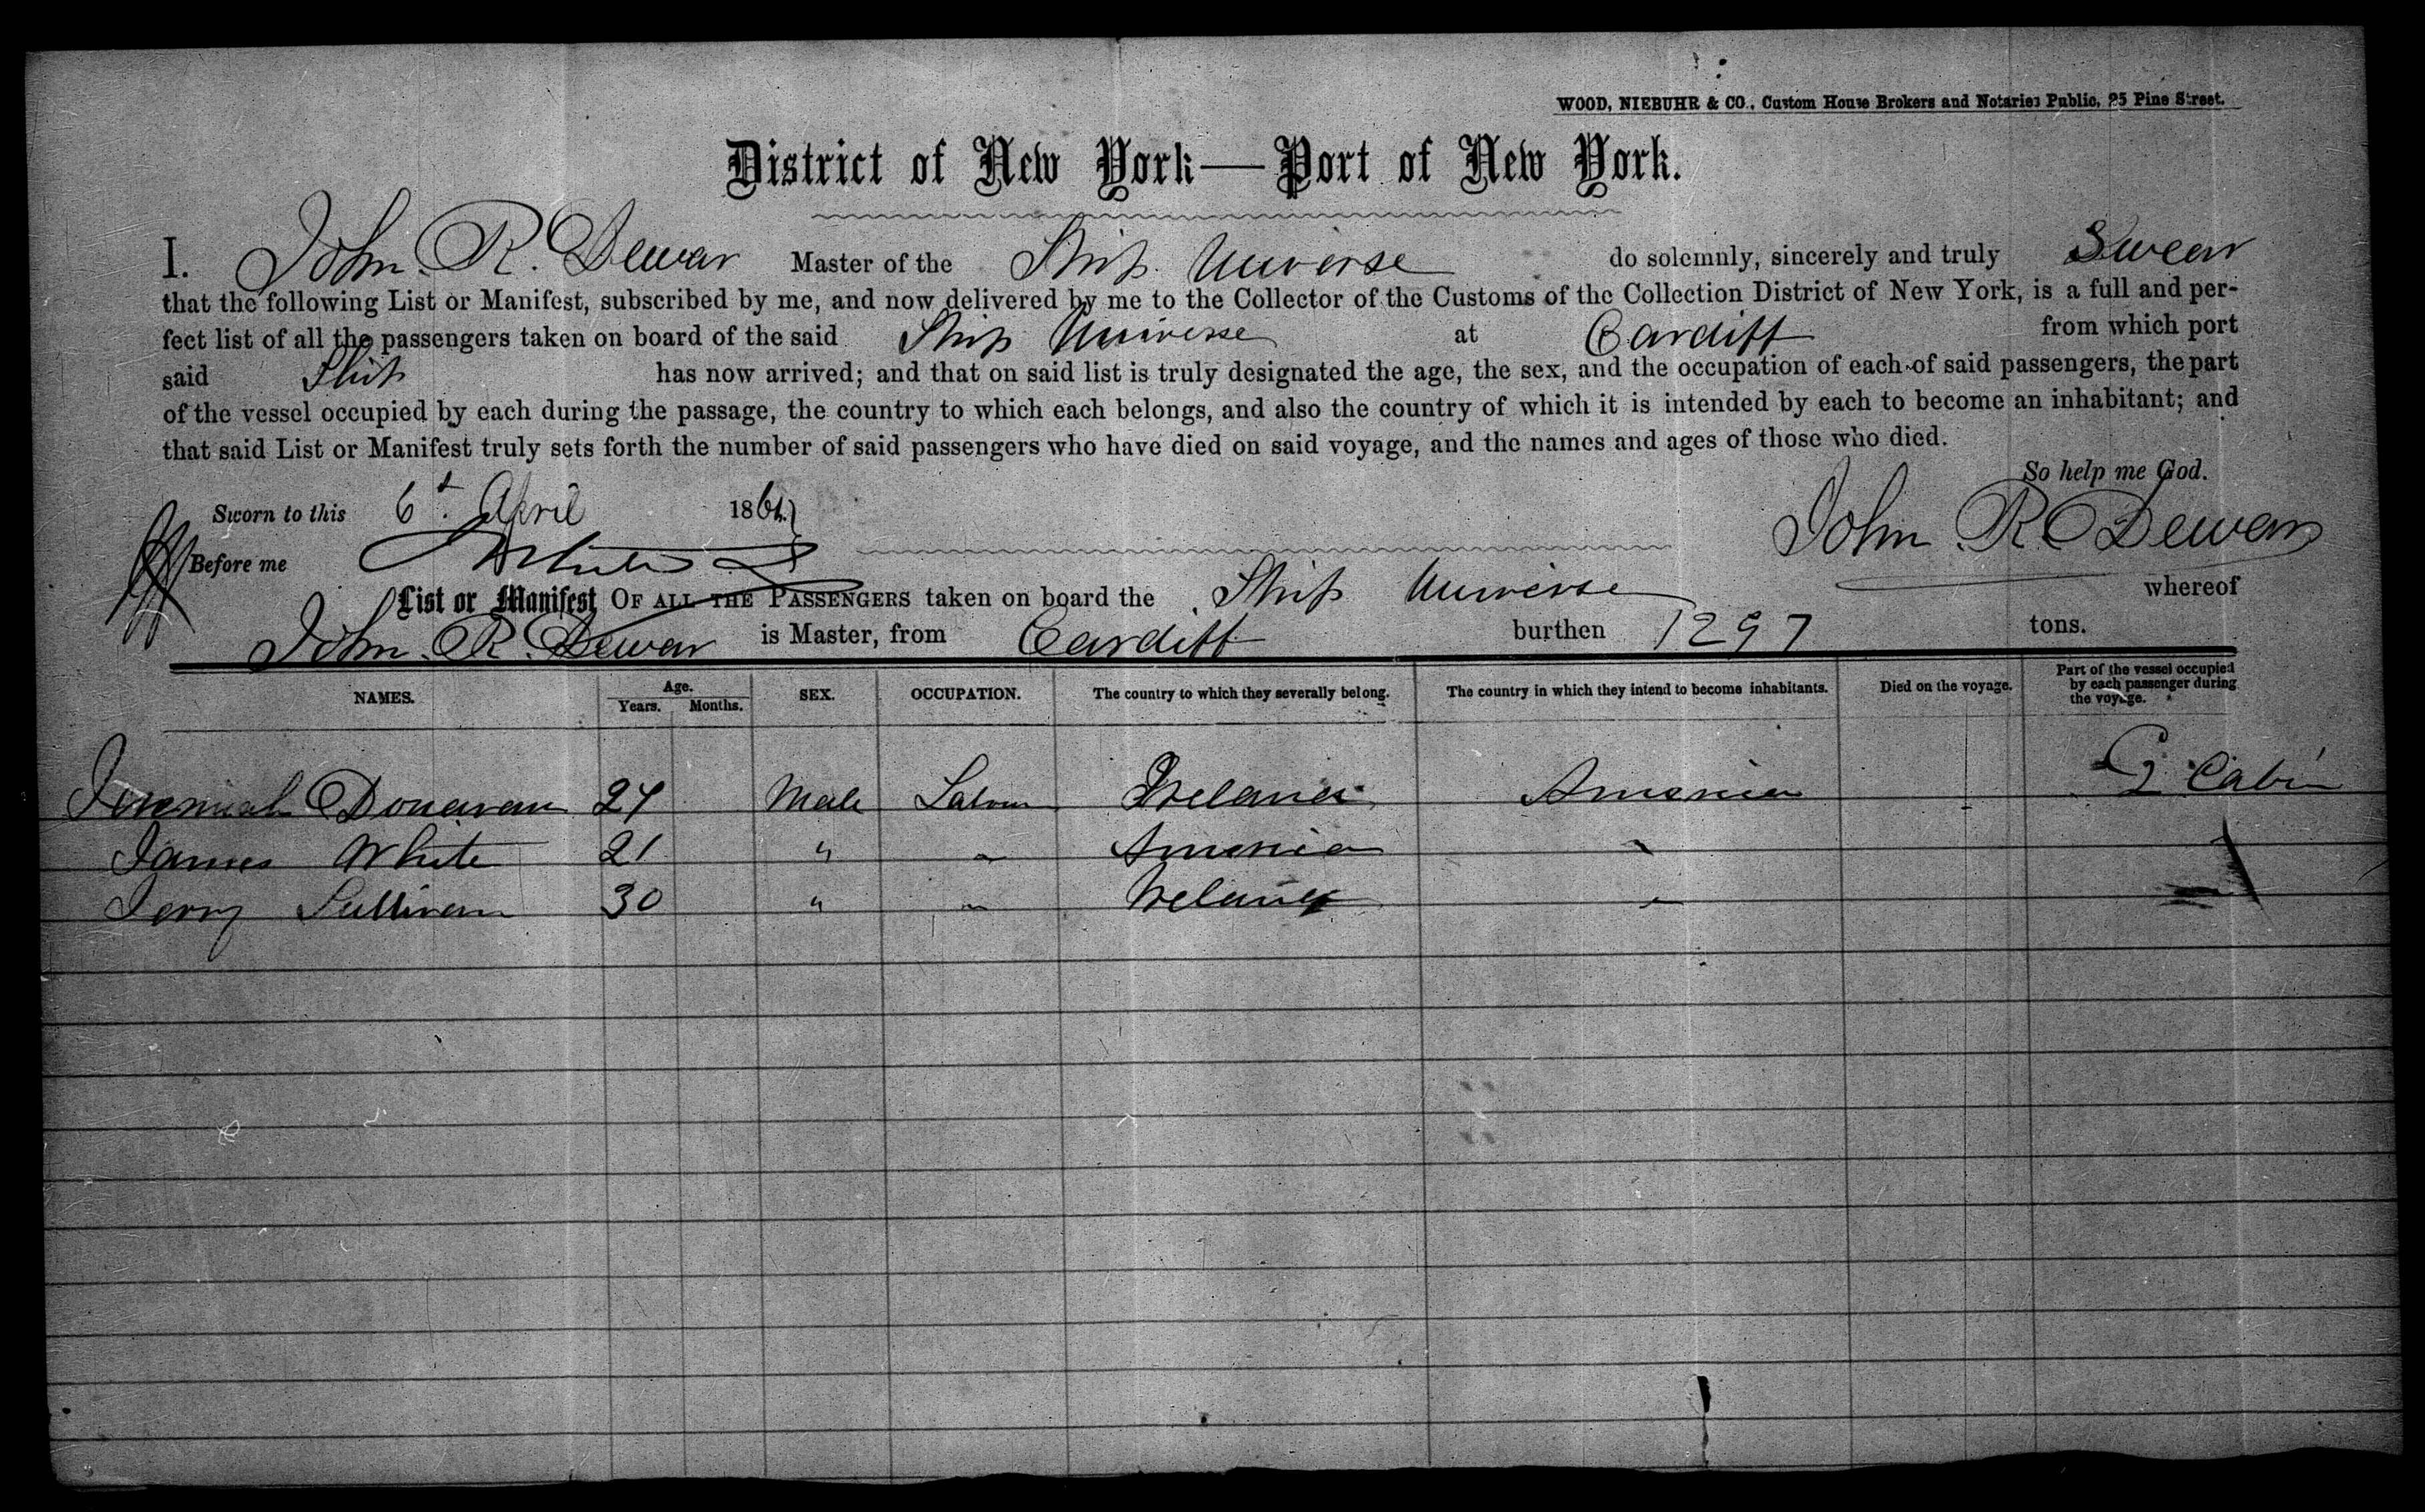 WOOD, NIEBUHR & CO., Custom House Brokers and Notaries Public, 25 Pine Street.
District of New York—Port of New York.
I. John. R. Dewar Master of the Ship Universe do solemnly, sincerely and truly Swear
that the following List or Manifest, subscribed by me, and now delivered by me to the Collector of the Customs of the Collection District of New York, is a full and per-
fect list of all the passengers taken on board of the said Ship Universe at Cardiff from which port
said Ship has now arrived; and that on said list is truly designated the age, the sex, and the occupation of each of said passengers, the part
of the vessel occupied by each during the passage, the country to which each belongs, and also the country of which it is intended by each to become an inhabitant; and
that said List or Manifest truly sets forth the number of said passengers who have died on said voyage, and the names and ages of those who died.
So help me God.
Sworn to this 6t. April 1864. John R Dewar
Before me
List or Manifest OF ALL THE PASSENGERS taken on board the Ship Universe whereof
John. R. Dewar is Master, from Cardiff burthen 1297 tons.
NAMES. Age. Years. Months. SEX. OCCUPATION. The country to which they severally belong. The country in which they intend to become inhabitants. Died on the voyage. Part of the vessel occupied by each passenger during the voyage.
Jeremiah Donavan Male Labour Ireland America Cabin
James White 21 " " America "
Jerry Sullivan 30 " " Ireland "